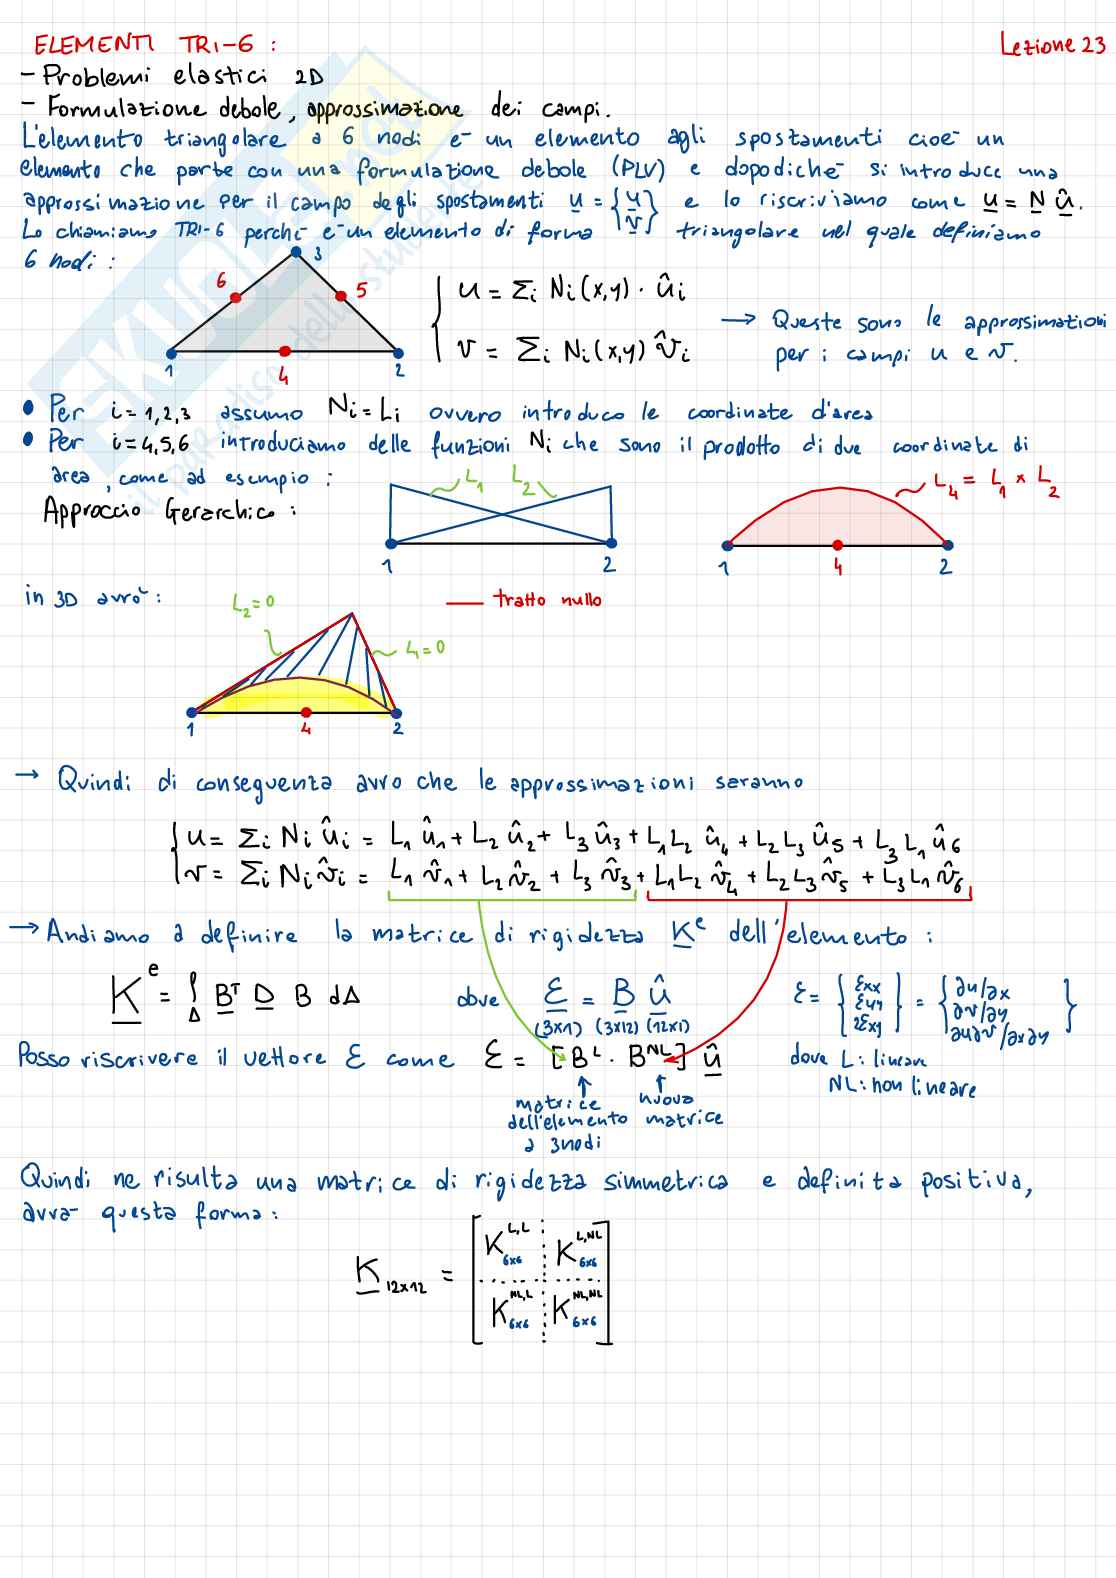 ELEMENTI TRI-6 :
Lezione 23
- Problemi elastici 2D
- Formulazione debole, approssimazione dei campi.
L'elemento triangolare a 6 nodi è un elemento agli spostamenti cioè un
elemento che parte con una formulazione debole (PLV) e dopodiché si introduce una
approssimazione per il campo degli spostamenti u = {u v} e lo riscriviamo come u = N û.
Lo chiamiamo TRI-6 perché è un elemento di forma triangolare nel quale definiamo
6 nodi :
3
6
5
1
4
2
u = Σi Ni(x,y) · ûi
v = Σi Ni(x,y) v̂i
→ Queste sono le approssimazioni
per i campi u e v.
• Per i=1,2,3 assumo Ni=Li ovvero introduco le coordinate d'area
• Per i=4,5,6 introduciamo delle funzioni Ni che sono il prodotto di due coordinate di
area, come ad esempio :
L1 L2
L4 = L1 × L2
Approccio Gerarchico :
1 2
1 4 2
in 3D avrò :
L2=0
— tratto nullo
L1=0
1 4 2
→ Quindi di conseguenza avrò che le approssimazioni saranno
u = Σi Ni ûi = L1 û1 + L2 û2 + L3 û3 + L1L2 û4 + L2L3 û5 + L3L1 û6
v = Σi Ni v̂i = L1 v̂1 + L2 v̂2 + L3 v̂3 + L1L2 v̂4 + L2L3 v̂5 + L3L1 v̂6
→ Andiamo a definire la matrice di rigidezza Kᵉ dell'elemento :
Kᵉ = ∫Δ Bᵀ D B dΔ
dove ε = B û
(3x1) (3x12) (12x1)
ε = {εxx εyy 2εxy} = {∂u/∂x ∂v/∂y ∂u∂v/∂x∂y}
Posso riscrivere il vettore ε come ε = [Bᴸ · Bᴺᴸ] û
dove L : lineare
NL : non lineare
matrice dell'elemento a 3nodi
nuova matrice
Quindi ne risulta una matrice di rigidezza simmetrica e definita positiva,
avrà questa forma :
K 12x12 =
K L,L 6x6 K L,NL 6x6
K NL,L 6x6 K NL,NL 6x6